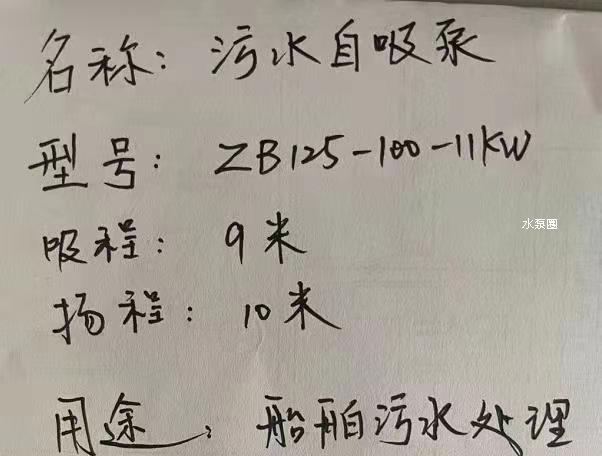 名称：污水自吸泵
型号：ZB125-100-11KW
水泵圈
吸程：9米
扬程：10米
用途：船舶污水处理